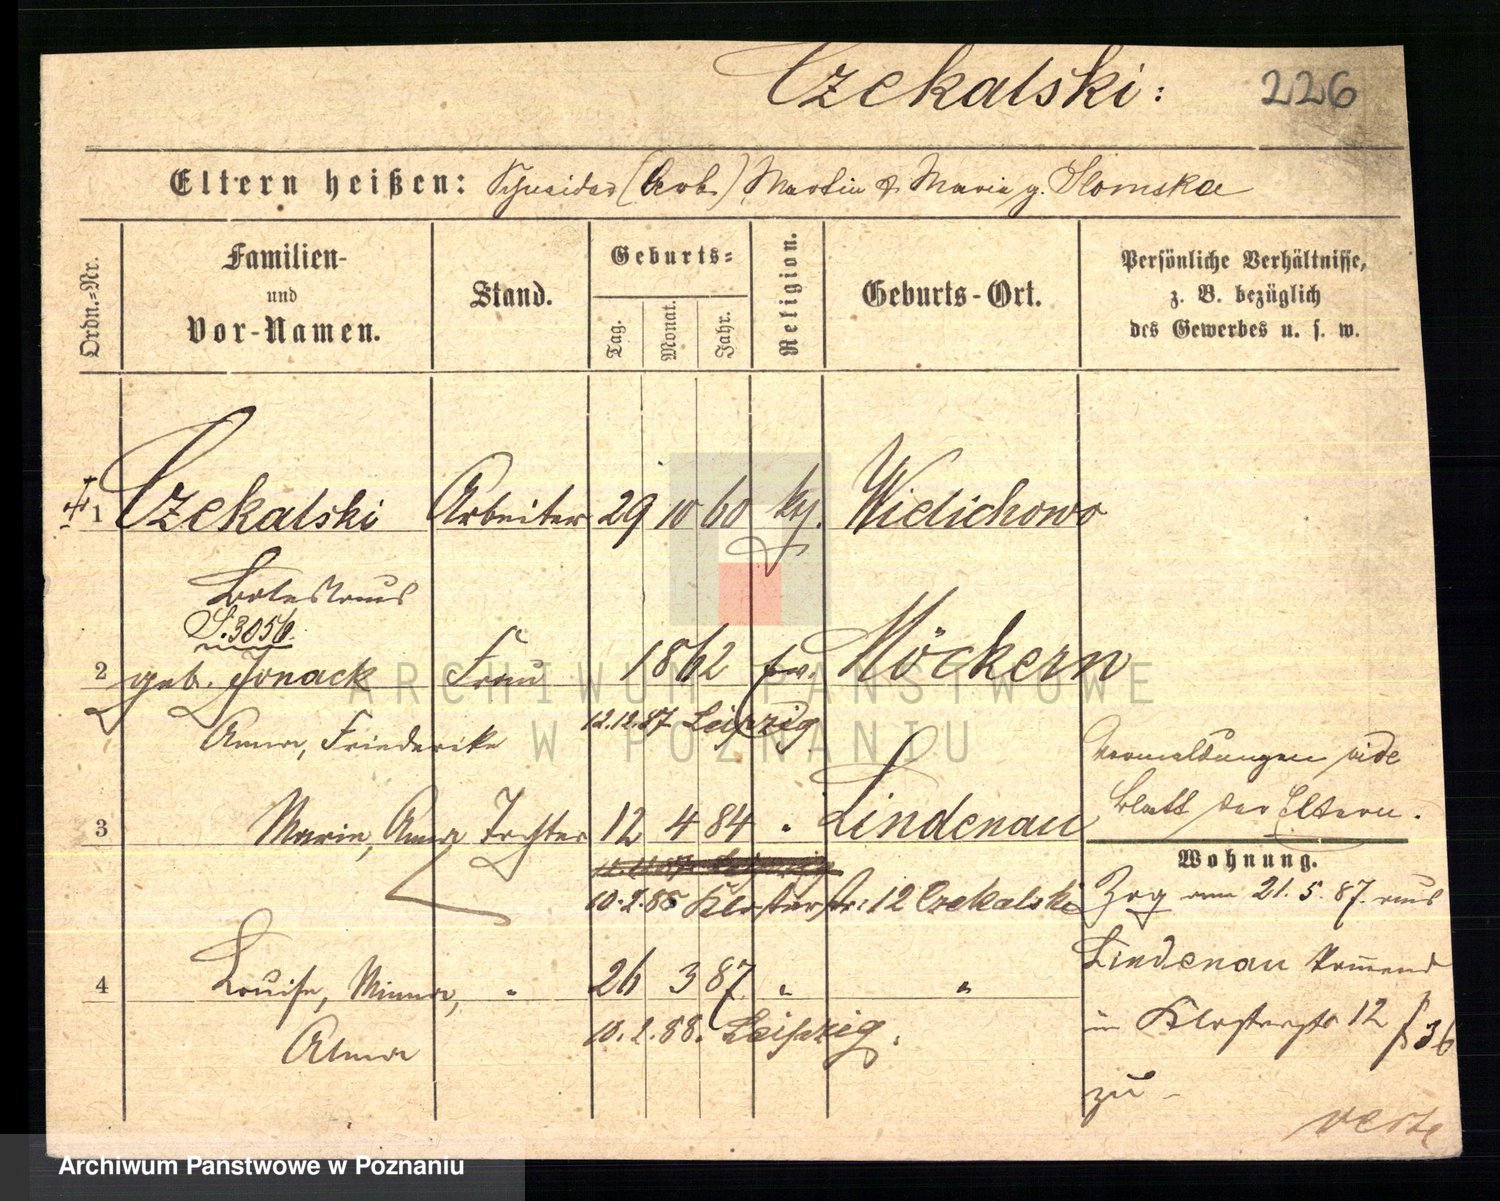 Czekalski: 226
Eltern heißen: Schneider (Arb.) Martin & Maria g. Slomska
Ordn.-Nr.
Familien-
und
Vor-Namen.
Stand.
Geburts-
Tag.
Monat.
Jahr.
Religion.
Geburts-Ort.
Persönliche Verhältnisse,
z. B. bezüglich
des Gewerbes u. s. w.
1 Czekalski Arbeiter 29 10 60 kth. Wielichowo
Boleslaus
S. 3056.
2 geb. Jonack Frau 1862 ev. Möckern
Anna, Friederike 12.12.87 Leipzig
3 Marie, Anna Tochter 12 4 84 " Lindenau
10.2.88 Klosterstr: 12 Czekalski
4 Louise, Minna, " 26 3 87 " "
Alma 10.2.88. Leipzig.
Vermeldungen vide
Blatt der Eltern.
Wohnung.
Zog am 21.5.87. aus
Lindenau
in Klosterstr 12 36
zu
verte
ARCHIWUM PAŃSTWOWE
W POZNANIU
Archiwum Państwowe w Poznaniu